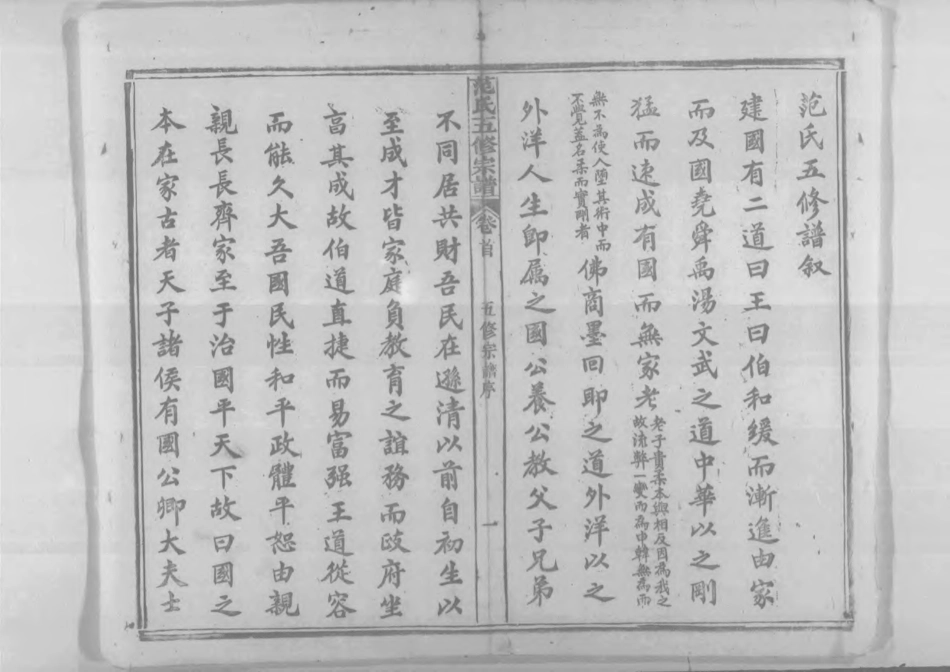 范氏五修譜叙
建國有二道曰王曰伯和緩而漸進由家
而及國堯舜禹湯文武之道中華以之剛
猛而速成有國而無家老老子貴柔本與相反因為我之故流弊一變而為申韓無為而
無不為使人墮其術中而不覺蓋名柔而實剛者佛商墨回耶之道外洋以之
外洋人生卽屬之國公養公教父子兄弟
范氏五修宗譜 卷首 五修宗譜序 一
不同居共財吾民在遜清以前自初生以
至成才皆家庭負教育之誼務而政府坐
享其成故伯道直捷而易富强王道從容
而能久大吾國民性和平政體平恕由親
親長長齊家至于治國平天下故曰國之
本在家古者天子諸侯有國公卿大夫士